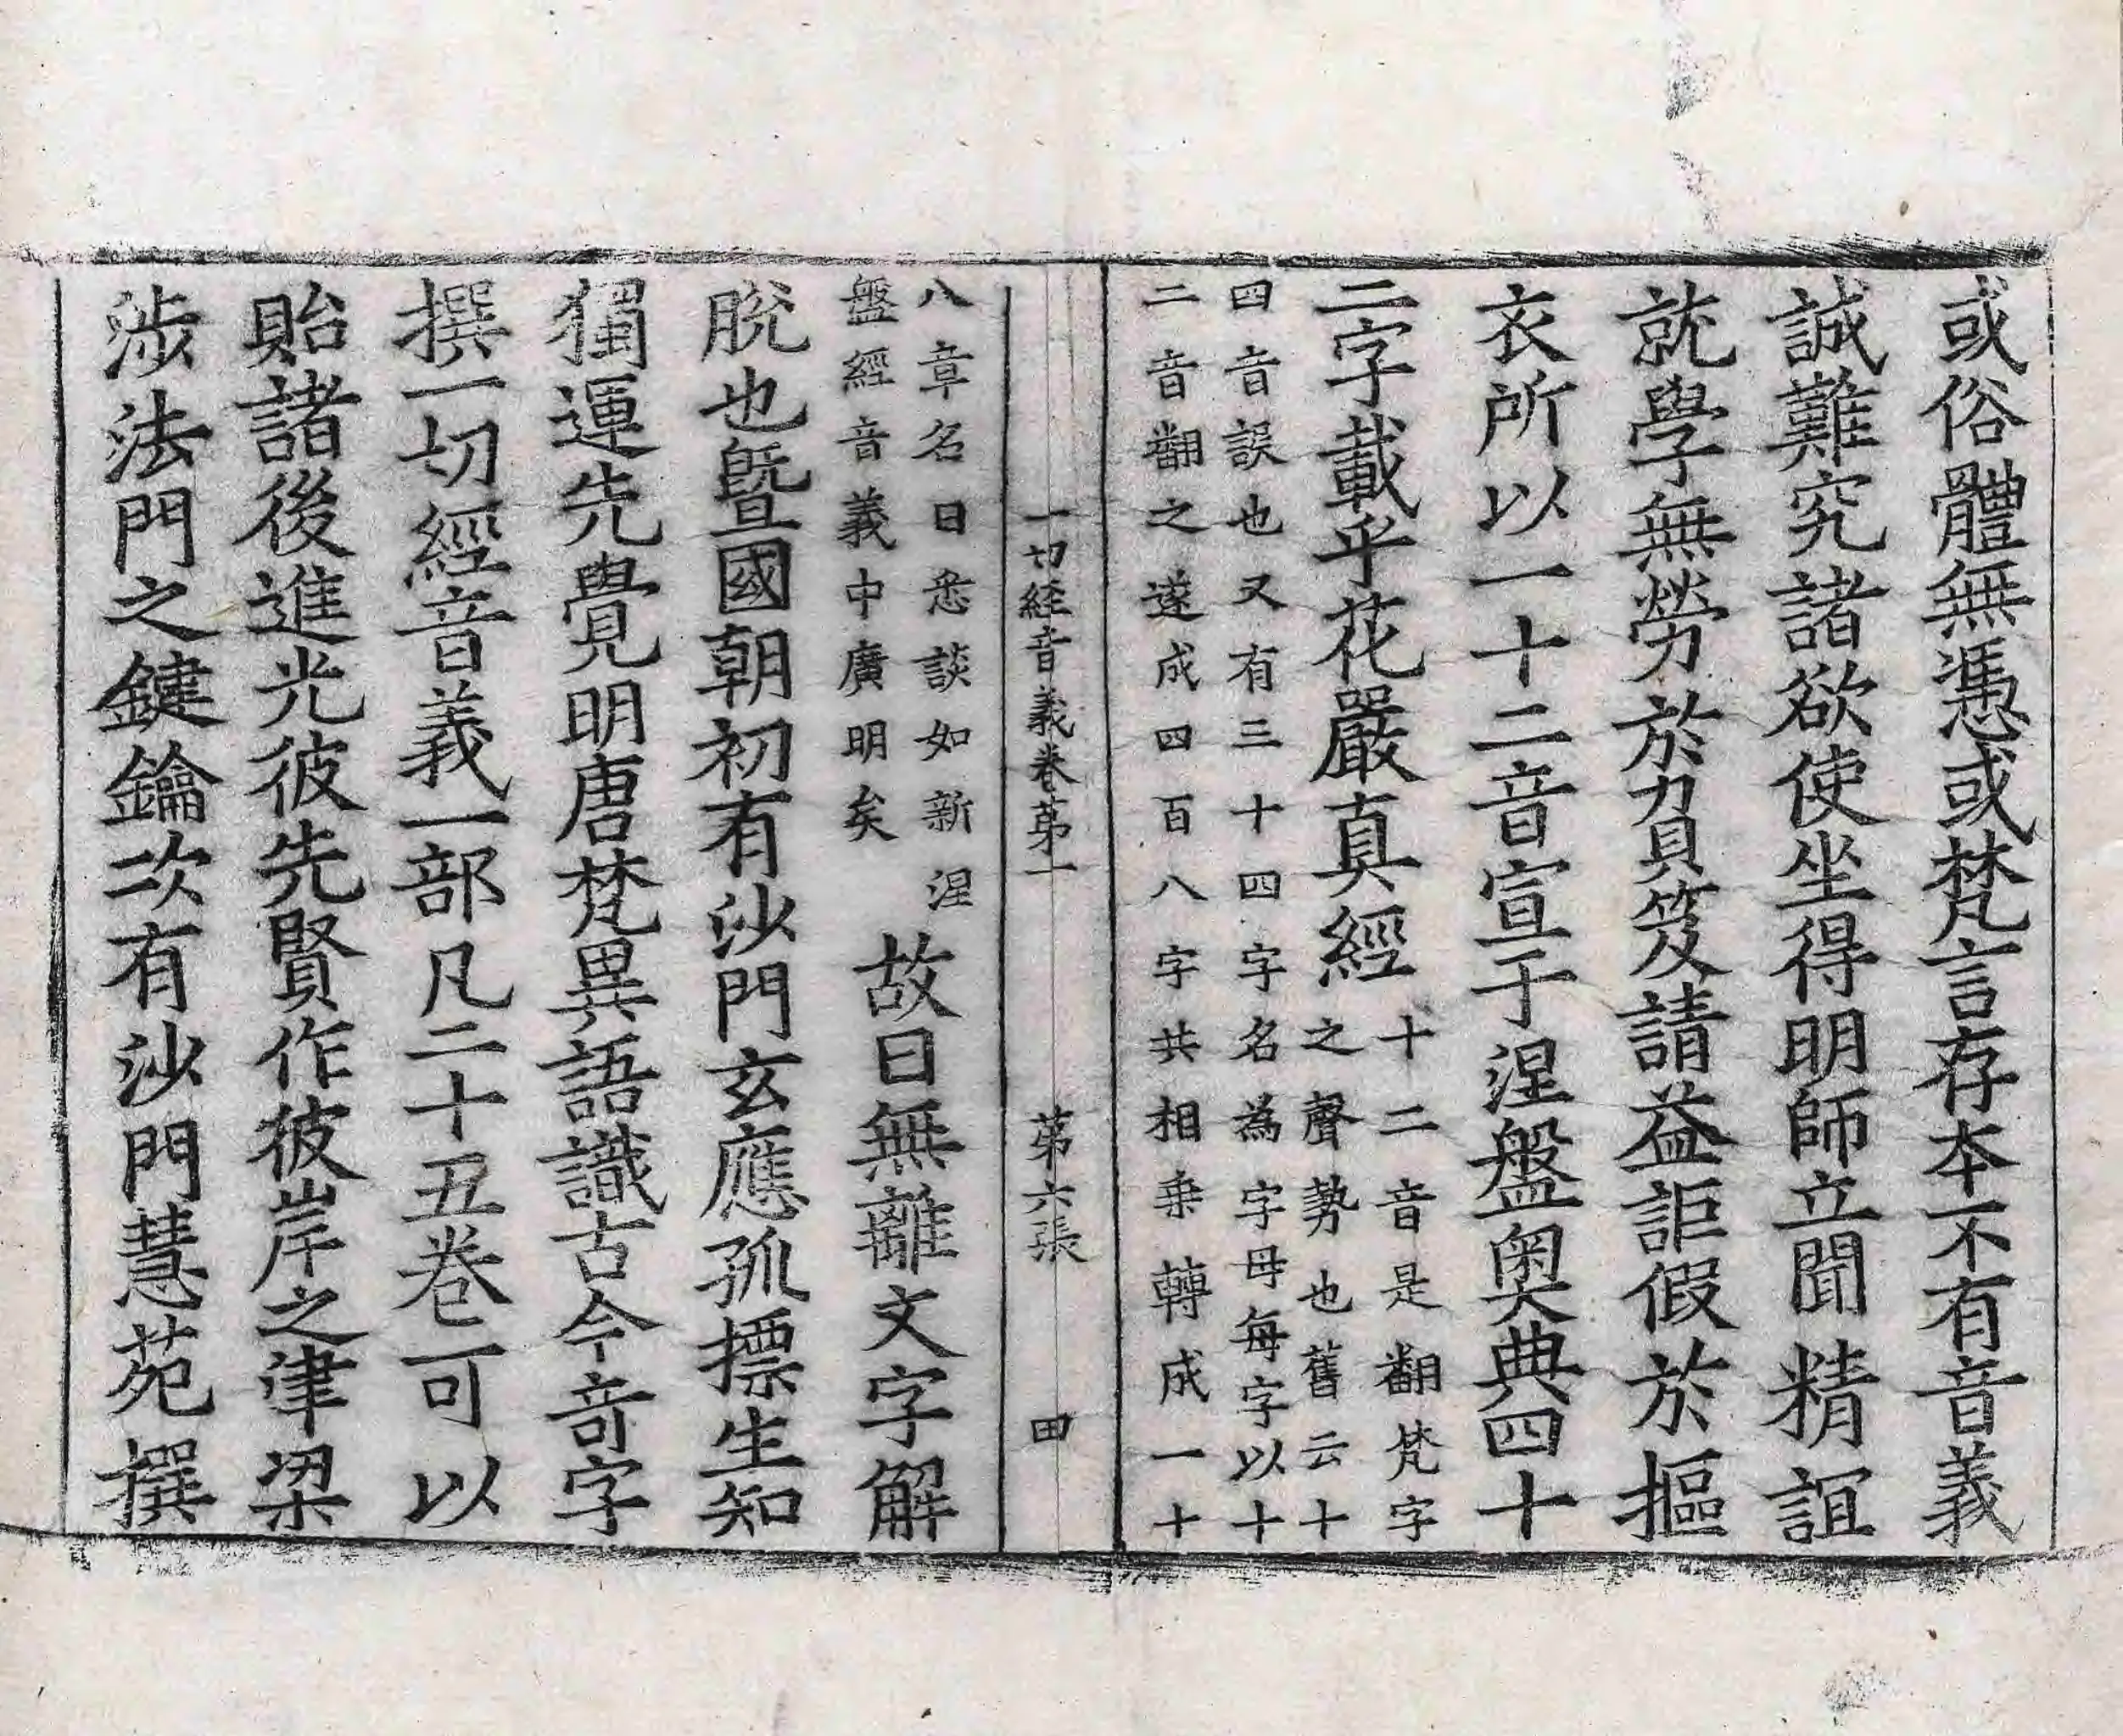 或俗體無憑或梵言存本不有音義
誠難究諸欲使坐得明師立聞精誼
就學無勞於負笈請益詎假於摳
衣所以一十二音宣于涅盤奧典四十
二字載乎花嚴真經十二音是翻梵字
之聲勢也舊云十
四音誤也又有三十四字名為字母每字以十
二音翻之遂成四百八字共相乗轉成一十
一切経音義卷苐一 苐六張 田
八章名曰悉談如新涅
盤經音義中廣明矣
故曰無離文字解
脫也曁國朝初有沙門玄應孤摽生知
獨運先覺明唐梵異語識古今竒字
撰一切經音義一部凡二十五卷可以
貽諸後進光彼先賢作彼岸之津梁
涉法門之鍵鑰次有沙門慧苑撰